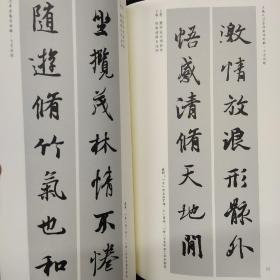 激情放浪形骸外
悟感清脩天地間
坐攬茂林情不惓
随遊脩竹氣也和